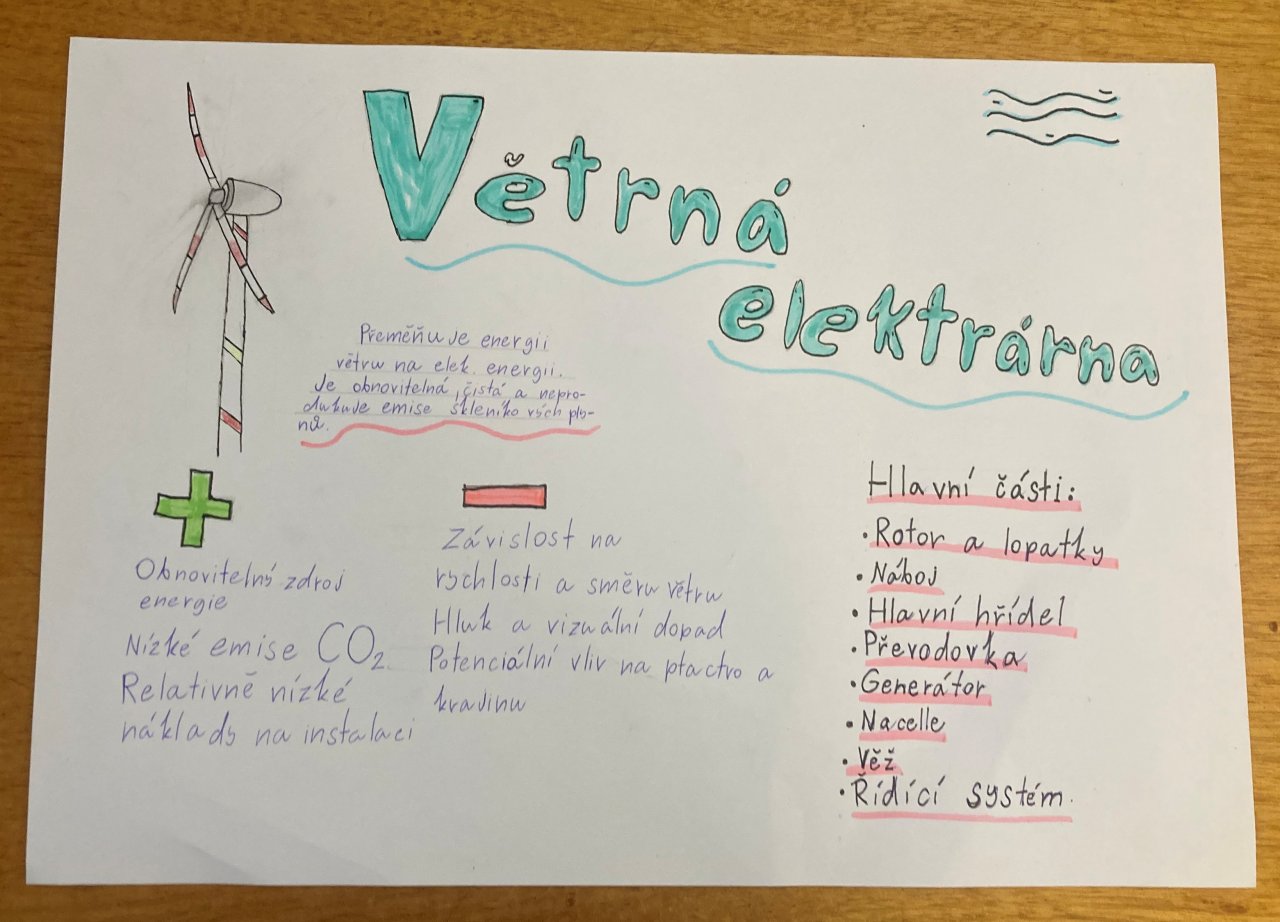 Větrná
elektrárna
Přeměňuje energii
větru na elek. energii.
Je obnovitelná, čistá a nepro-
dukuje emise skleníkových ply-
nů.
+
Obnovitelný zdroj
energie
Nízké emise CO₂.
Relativně nízké
náklady na instalaci
-
Závislost na
rychlosti a směru větru
Hluk a vizuální dopad
Potenciální vliv na ptactvo a
krajinu
Hlavní části:
• Rotor a lopatky
• Náboj
• Hlavní hřídel
• Převodovka
• Generátor
• Nacelle
• Věž
• Řídící systém.